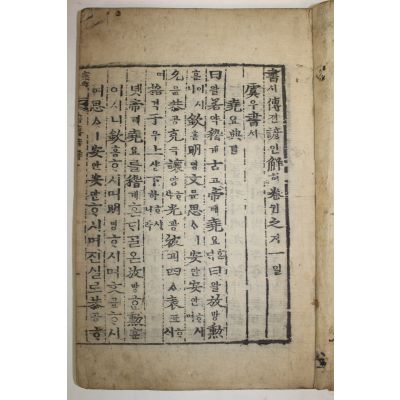 書셔傳젼諺언解ᄒᆡ卷권之지一일
虞우書셔
堯요典뎐
曰왈若약稽계古고帝뎨堯요ᄒᆞᆫᄃᆡ曰왈放방
勳훈이시니欽흠明명文문思ᄉᆞㅣ安안安안ᄒᆞ시며
允윤恭공克극讓양ᄒᆞ샤光광被피四ᄉᆞ表표ᄒᆞ시며
格격于우上샹下하ᄒᆞ시니라
녯帝뎨堯요를稽계ᄒᆞᆫᄃᆡᄀᆞᆯ온放방勳훈
이시니欽흠ᄒᆞ시며明명ᄒᆞ시며文문ᄒᆞ시
며思ᄉᆞㅣ安안安안ᄒᆞ시며진실로恭공ᄒᆞ시